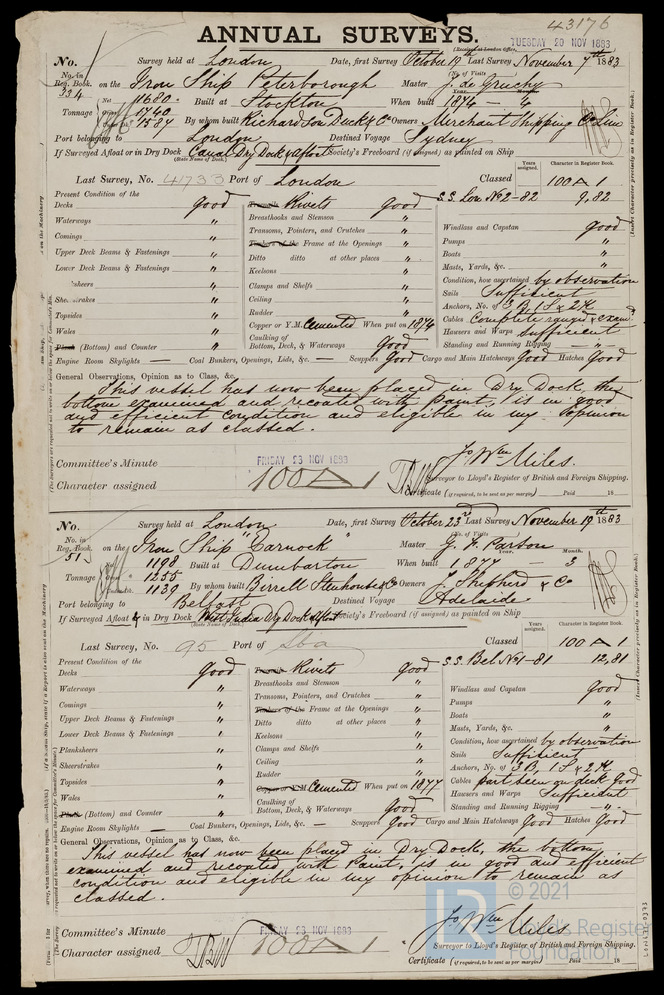 43176
ANNUAL SURVEYS.
(Received at London Office, TUESDAY 20 NOV 1883
No. Survey held at London Date, first Survey October 19th Last Survey November 7th 1883
No. in Reg. Book. on the Iron Ship Peterborough Master J. de Gruchy
334
Net 1680 Built at Stockton When built 1874 - 4
Tonnage 1740
1584 By whom built Richardson Duck & Co Owners Merchant Shipping Co Lim
Port belonging to London Destined Voyage Sydney
If Surveyed Afloat or in Dry Dock Canal Dry Dock & Afloat Society's Freeboard (if assigned) as painted on Ship
(State Name of Dock.)
Years assigned. Character in Register Book.
Last Survey, No. 41733 Port of London Classed 100 A 1
S.S. Lon No 2-82 9,82
Present Condition of the
Decks good
Waterways "
Comings "
Upper Deck Beams & Fastenings "
Lower Deck Beams & Fastenings "
sheers "
Sheerstrakes "
Topsides "
Wales "
Plank (Bottom) and Counter "
Treenails Rivets good
Breasthooks and Stemson "
Transoms, Pointers, and Crutches "
Timbers of the Frame at the Openings "
Ditto ditto at other places "
Keelsons "
Clamps and Shelfs "
Ceiling "
Rudder "
Copper or Y.M. Cemented When put on 1874
Caulking of Bottom, Deck, & Waterways Good
Windlass and Capstan good
Pumps "
Boats "
Masts, Yards, &c. "
Condition, how ascertained by observation
Sails Sufficient
Anchors, No. of 3 B, 1 S, & 2 K
Cables Complete ranged & exam
Hawsers and Warps sufficient
Standing and Running Rigging - " -
Engine Room Skylights — Coal Bunkers, Openings, Lids, &c. — Scuppers Good Cargo and Main Hatchways Good Hatches Good
General Observations, Opinion as to Class, &c.
This vessel has now been placed in Dry Dock, the
bottom examined and recoated with paint, is in good
and efficient condition and eligible in my opinion
to remain as classed.
Committee's Minute FRIDAY 23 NOV 1883
Character assigned 100 A 1
Jo Wm Miles.
Surveyor to Lloyd's Register of British and Foreign Shipping.
Certificate (if required, to be sent as per margin) Paid 18
No. Survey held at London Date, first Survey October 23rd Last Survey November 19th 1883
No. in Reg. Book. on the Iron Ship "Carnock" Master G. F. Parson
513
1198 Built at Dumbarton When built 1877 - 3
Tonnage 1255
1139 By whom built Birrell Stenhouse & Co Owners J. Shepherd & Co
Port belonging to Belfast Destined Voyage Adelaide
If Surveyed Afloat & in Dry Dock West India Dry Dock & Afloat Society's Freeboard (if assigned) as painted on Ship
(State Name of Dock.)
Years assigned. Character in Register Book.
Last Survey, No. 95 Port of Classed 100 A 1
S.S. Bel No 1-81 12,81
Present Condition of the
Decks Good
Waterways "
Comings "
Upper Deck Beams & Fastenings "
Lower Deck Beams & Fastenings "
Planksheers "
Sheerstrakes "
Topsides "
Wales "
Plank (Bottom) and Counter "
Treenails Rivets good
Breasthooks and Stemson "
Transoms, Pointers, and Crutches "
Timbers of the Frame at the Openings "
Ditto ditto at other places "
Keelsons "
Clamps and Shelfs "
Ceiling "
Rudder "
Copper or Y.M. Cemented When put on 1877
Caulking of Bottom, Deck, & Waterways Good
Windlass and Capstan good
Pumps "
Boats "
Masts, Yards, &c. "
Condition, how ascertained by observation
Sails Sufficient
Anchors, No. of 3 B, 1 S, & 2 K
Cables part seen on deck good
Hawsers and Warps Sufficient
Standing and Running Rigging - " -
Engine Room Skylights — Coal Bunkers, Openings, Lids, &c. — Scuppers Good Cargo and Main Hatchways Good Hatches Good
General Observations, Opinion as to Class, &c.
This vessel has now been placed in Dry Dock, the bottom
examined and recoated with Paint, is in good and efficient
condition and eligible in my opinion to remain as
classed.
© 2021
Lloyd's Register
Foundation
Committee's Minute FRIDAY 23 NOV 1883
Character assigned 100 A 1
Jo Wm Miles
Surveyor to Lloyd's Register of British and Foreign Shipping.
Certificate (if required, to be sent as per margin) Paid 18